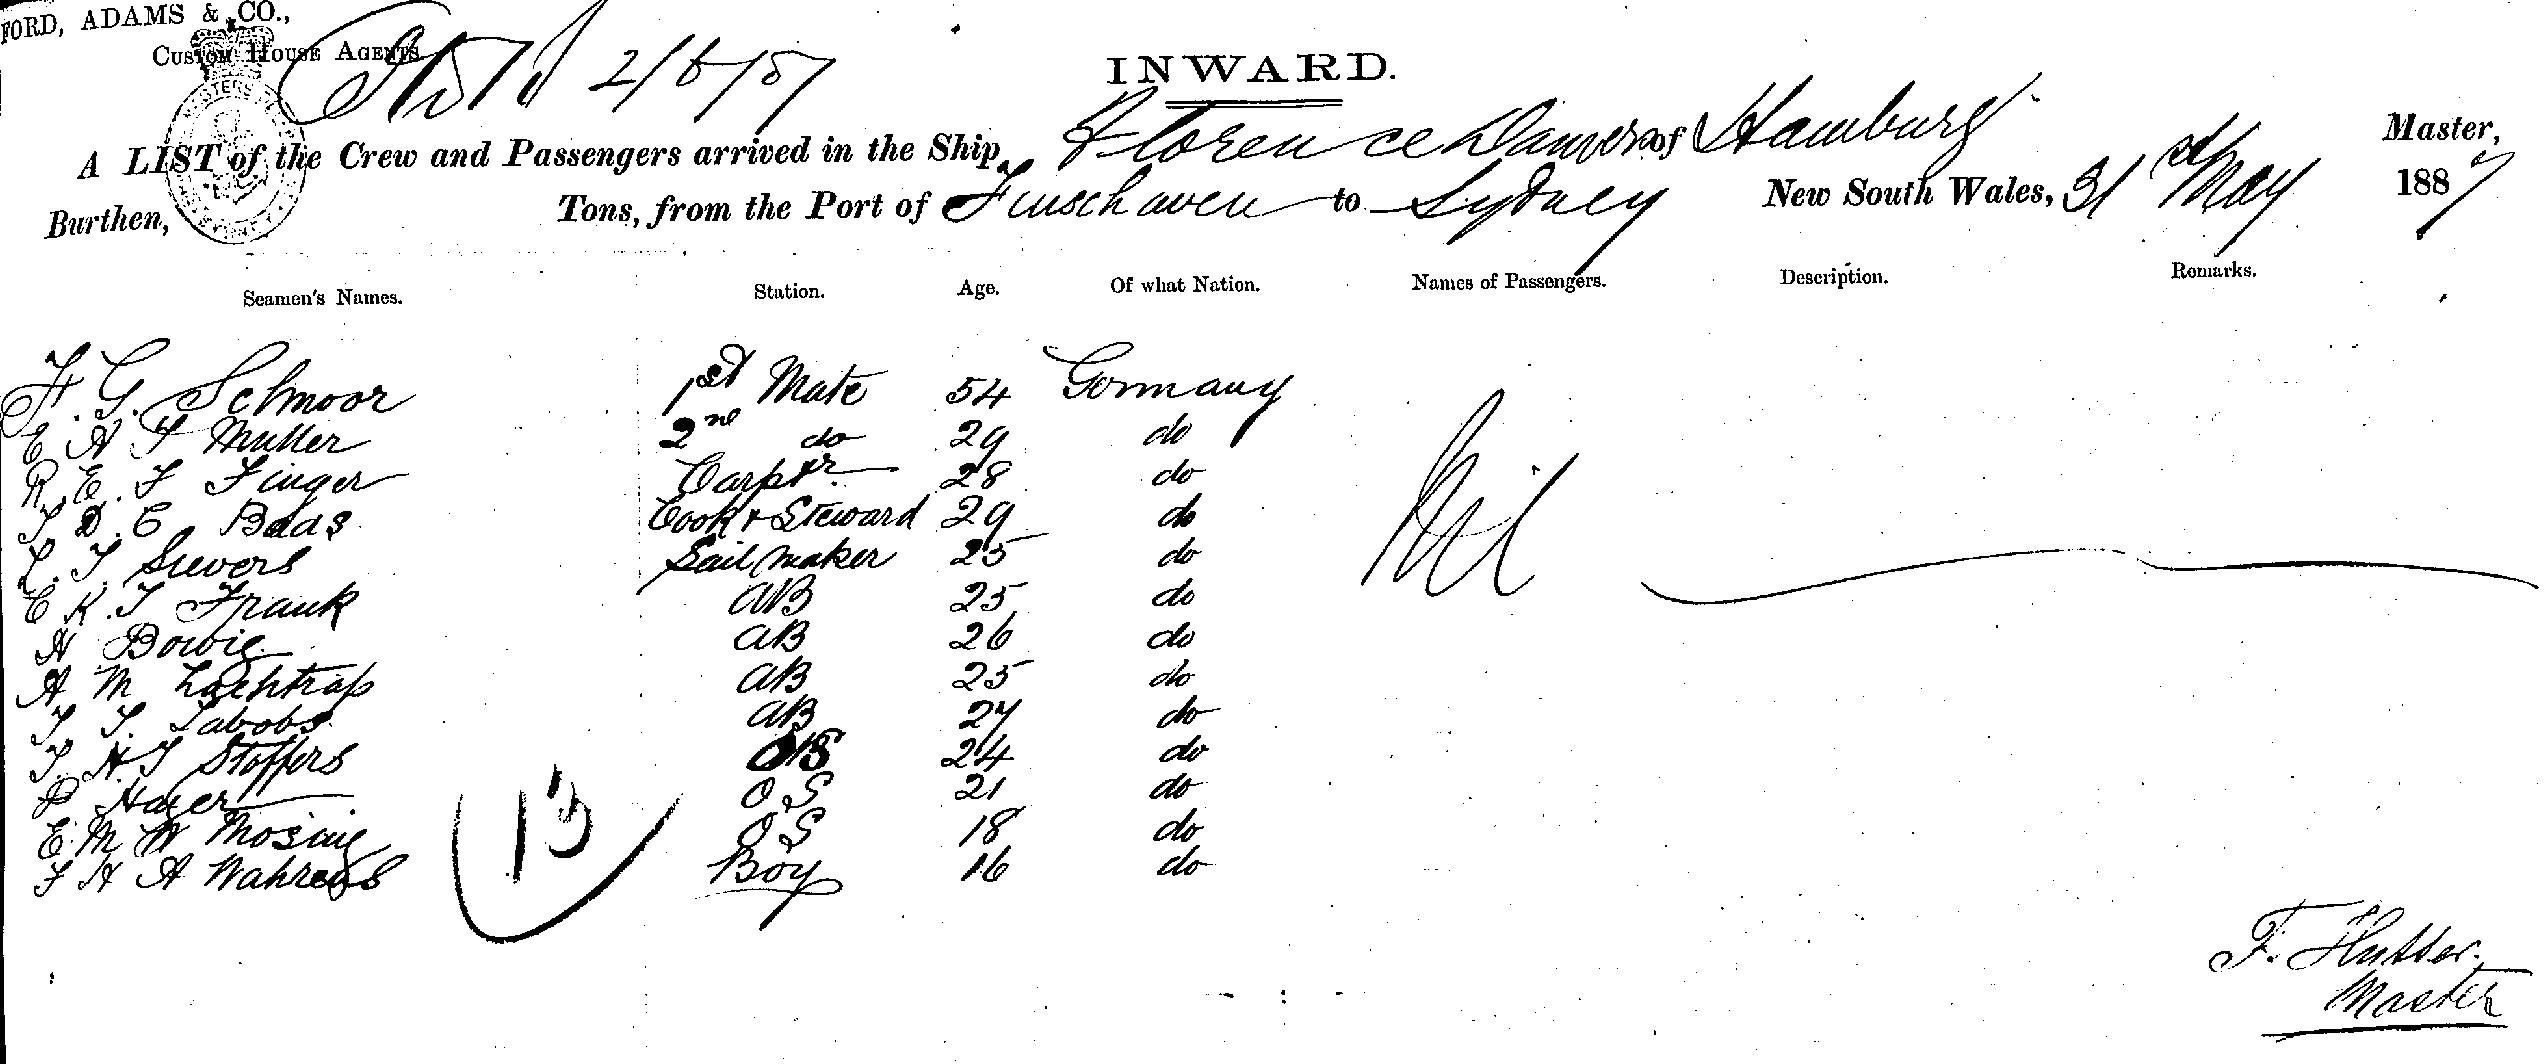 FORD, ADAMS & CO.,
CUSTOM HOUSE AGENTS
2/6/87
INWARD.
A LIST of the Crew and Passengers arrived in the Ship Florence Danvers of Hamburg Master,
Burthen, Tons, from the Port of Finschaven to Sydney New South Wales, 31st May 1887
Seamen's Names. Station. Age. Of what Nation. Names of Passengers. Description. Remarks.
F. G. Schmoor 1st Mate 54 Germany
E H F Muller 2nd do 29 do
R. E. F Finger Carptr 28 do Nil
J D C Bads Cook & Steward 29 do
L. J Sievers Sailmaker 25 do
E K. J Frank AB 25 do
H Bowig AB 26 do
A M Lochtrap AB 25 do
J. J. Jabobs AB 27 do
J. H. J Stoffers OS 24 do
P Hager OS 21 do
E. M W Mosaig OS 18 do
J H A Wahrens Boy 16 do
13
F. Hutter.
Master